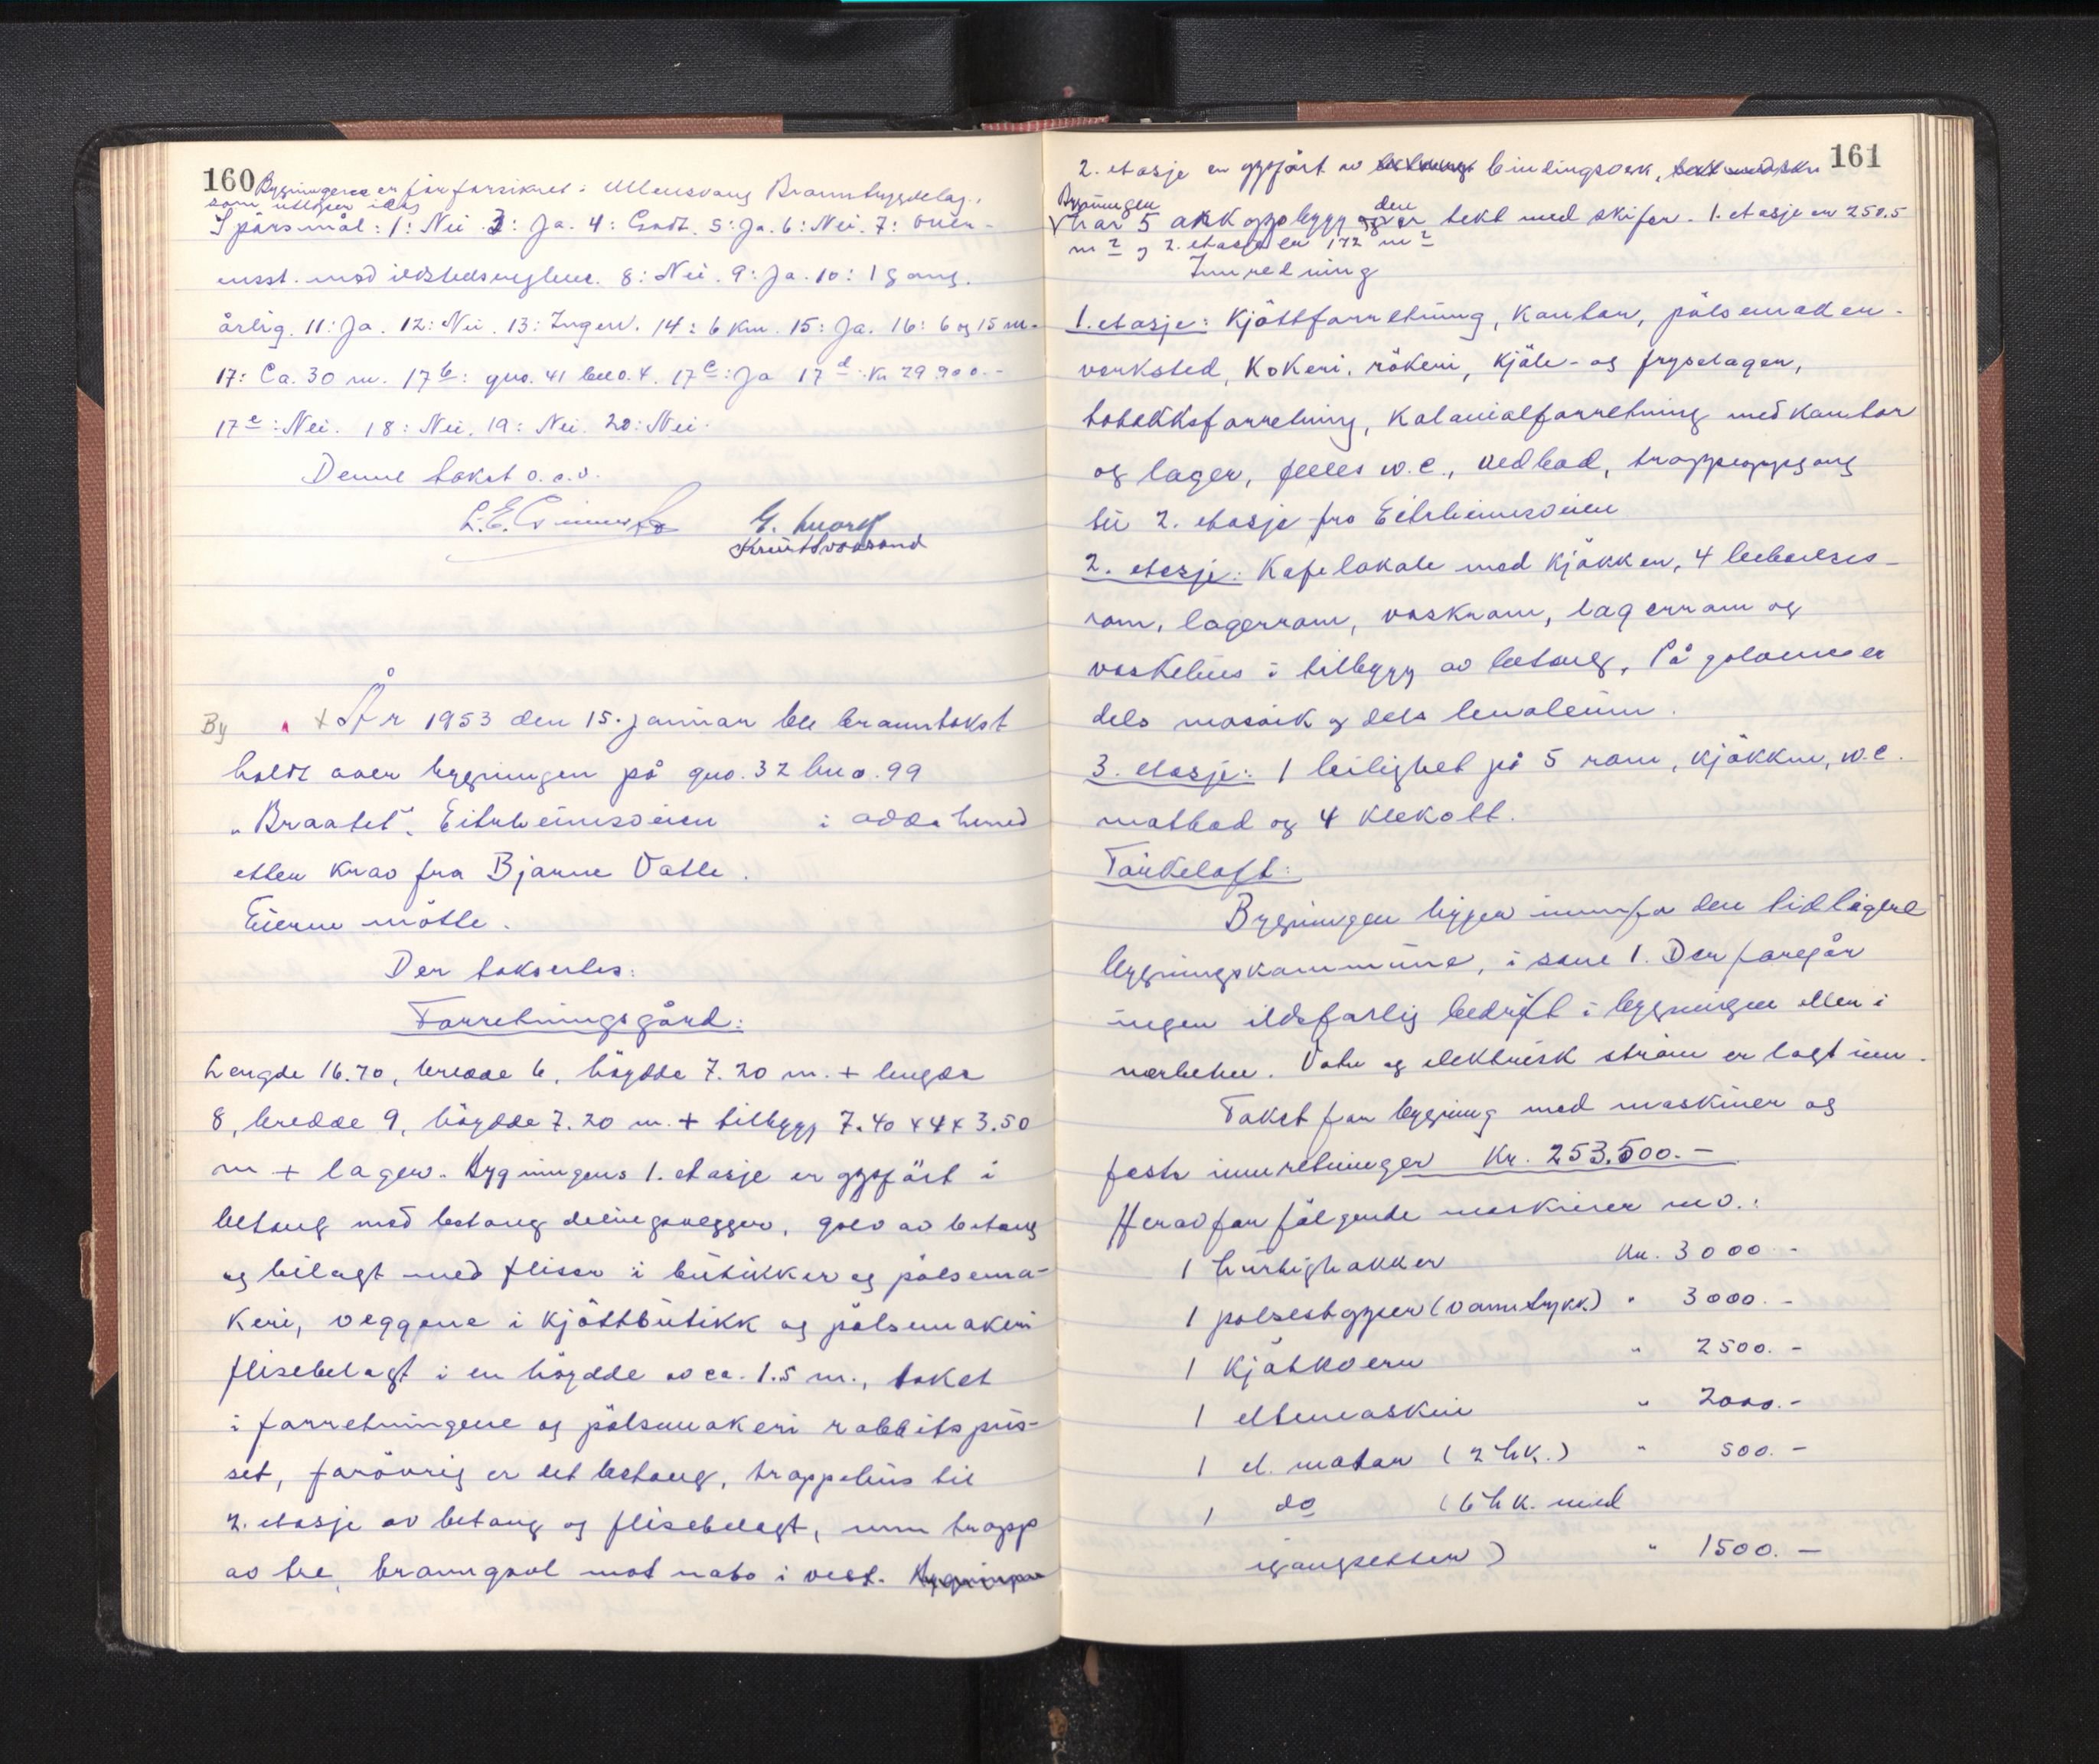 160
Bygningene er før forsikret i Ullensvang Branntrygdelag,
som utløper idag
Spørsmål: 1: Nei 3: Ja. 4: Godt. 5: Ja. 6: Nei. 7: Over-
ensst. med ildstedsreglene. 8: Nei. 9: Ja. 10: 1 gang.
årlig. 11: Ja. 12: Nei. 13: Ingen. 14: 6 km. 15: Ja. 16: 6 og 15 m.
17: Ca. 30 m. 17b: gno. 41 bno. 4. 17c: Ja 17d: Kr 29.900.-
17e: Nei. 18: Nei. 19: Nei. 20: Nei.
Denne takst o.s.v.
By + År 1953 den 15. januar ble branntakst
holdt over bygningen på gno. 32 bno. 99
"Braatet", Eitrheimsveien i Odda herred
etter krav fra Bjarne Vatle.
Eieren møtte.
Der takseres:
Forretningsgård:
Lengde 16.70, bredde 6, høydde 7.20 m. + lengde
8, bredde 9, høydde 7.20 m. + tilbygg 7.40 x 4 x 3.50
m + lager. Bygningens 1. etasje er oppført i
betong med betong delingsvegger, golv av betong
og belagt med fliser i butikker og pølsema-
keri, veggene i kjøttbutikk og pølsemakeri
flisebelagt i en høydde av ca. 1.5 m., taket
i forretningene og pølsemakeri rabbitspus-
set, forøvrig er det betong, trappehus til
2. etasje av betong og flisebelagt, men trapp
av tre, branngavl mot nabo i vest. Bygningen
161
2. etasje er oppført av bindingsverk,
Bygningen den
har 5 ark oppbygg og er tekt med skifer. 1. etasje er 250.5
m2 og 2. etasje er 172 m2
Innredning
1. etasje: Kjøttforretning, kontor, pølsemaker-
verksted, kokeri, røkeri, kjøle- og fryselager,
tobakksforretning, kolonialforretning med kontor
og lager, felles w.c., vedbod, trappeoppgang
til 2. etasje fra Eitrheimsveien
2. etasje: Kafelokale med kjøkken, 4 beboelses-
rom, lagerrom, vaskrom, lagerrom og
vaskehus i tilbygg av betong. På golvene er
dels mosaik og dels linoleum.
3. etasje: 1 leilighet på 5 rom, kjøkken, w.c.
matbod og 4 klekott.
Tørkeloft:
Bygningen ligger innenfor den tidligere
bygningskommune, i sone 1. Der foregår
ingen ildsfarlig bedrift i bygningen eller i
nærheten. Vatn og elektrisk strøm er lagt inn.
Takst for bygning med maskiner og
faste innretninger Kr. 253.500.-
Herav for følgende maskiner m.v.:
1 hurtighakker Kr. 3000.-
1 pølsestopper (vanntrykk) " 3000.-
1 kjøtkvern " 2500.-
1 eltemaskin " 2000.-
1 el. motor (2 hk.) " 500.-
1 do (6 hk. med
igangsetter) " 1500.-